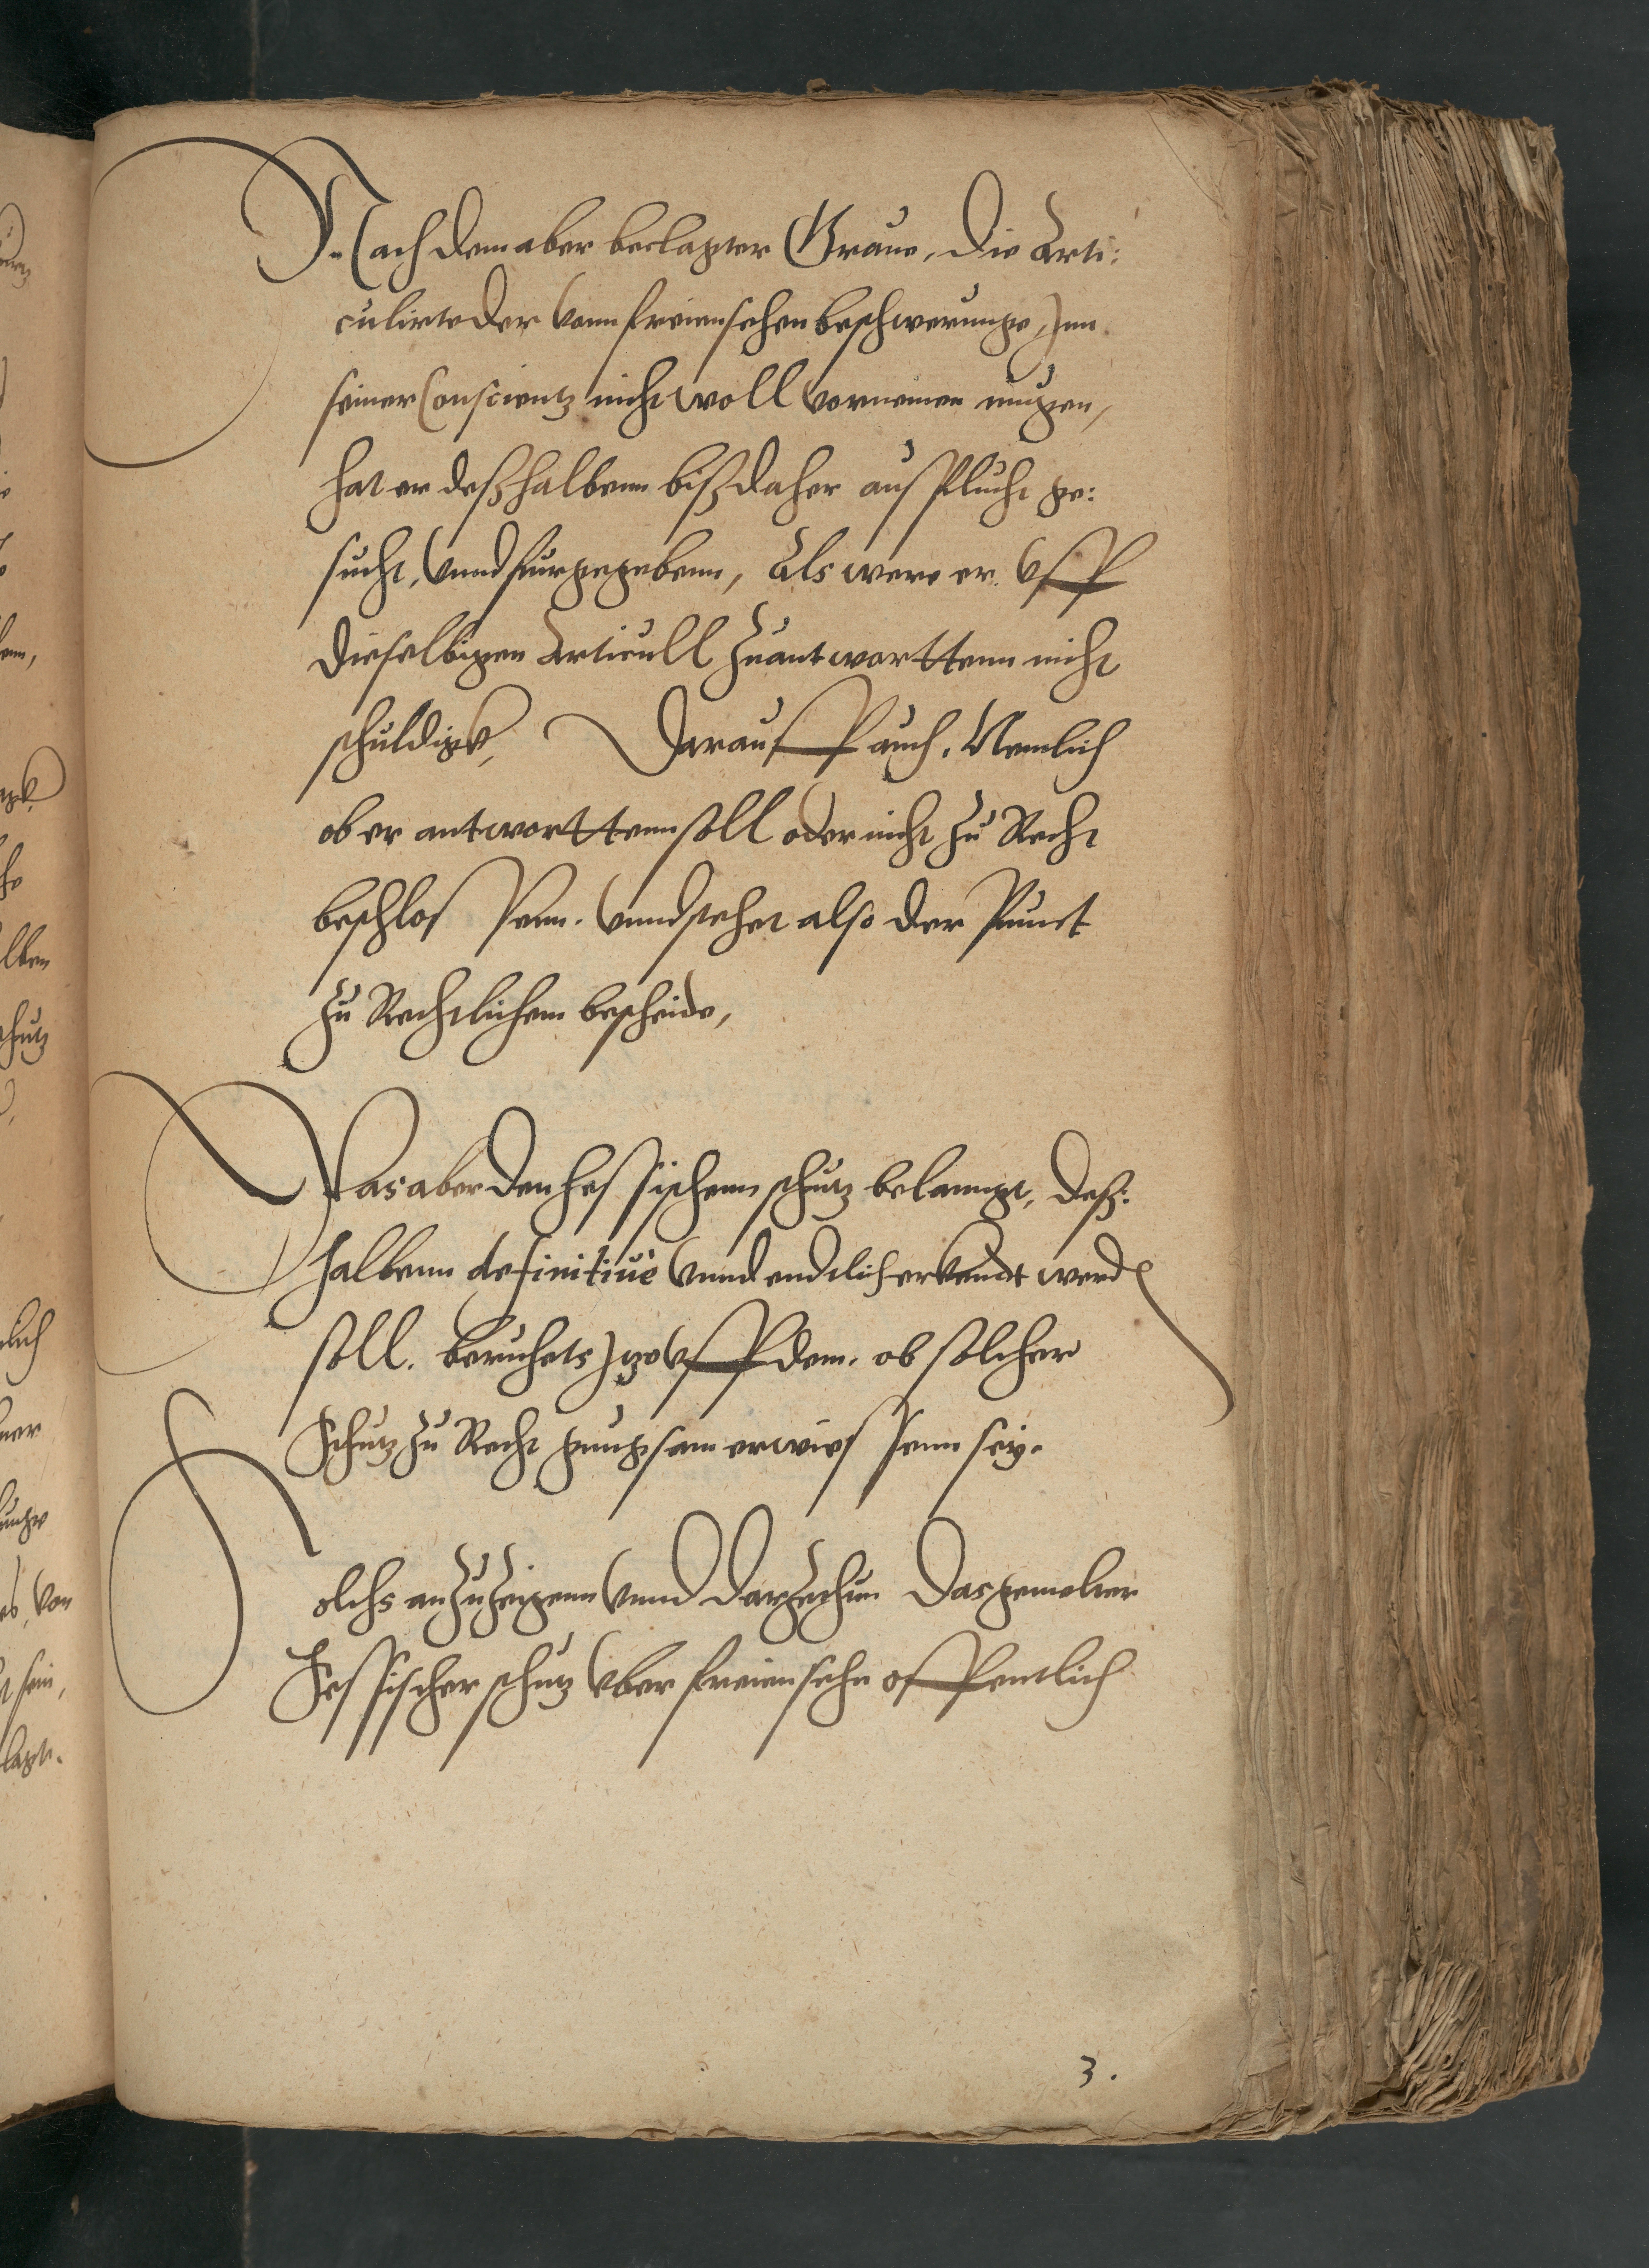 Nachdem aber beclagter Graue, die Arti:
culirte der vonn freiensehen beschwerunge, Jnn
seiner Conscientz nicht woll vorneinen mugen,
hat er deßhalbenn biß daher ausflucht ge:
sucht, vnnd furgegebenn, als were er vff
dieselbigen Articull zuantworttenn nicht
schuldigk, Darauff auch, Nemlich
ob er antworttenn soll oder nicht zu Recht
beschlossenn. vnnd stehet also der Punct
zu Rechtlichem bescheide,
Was aber den hessischenn schutz belanngt, deß:
halbenn definitiuè vnnd endtlich erkandt werden
soll. beruhets Jtzo vff dem. ob solcher
Schutz zu Recht gnugsam erwiessenn sey.
Solchs anzuzeigenn vnnd darzethun das gemelter
Hessischer schutz vber freiensehn offentlich
3.